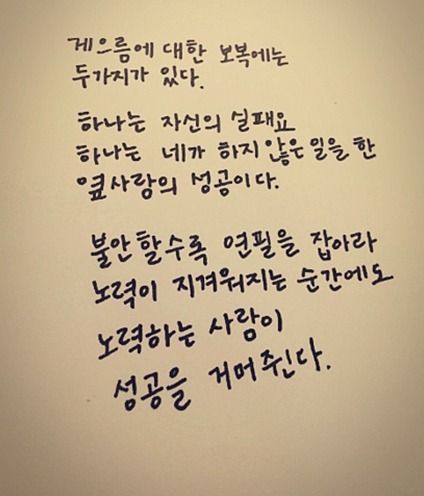 게으름에 대한 보복에는
두가지가 있다.
하나는 자신의 실패요
하나는 네가 하지 않은 일을 한
옆사람의 성공이다.
불안할수록 연필을 잡아라
노력이 지겨워지는 순간에도
노력하는 사람이
성공을 거머쥔다.